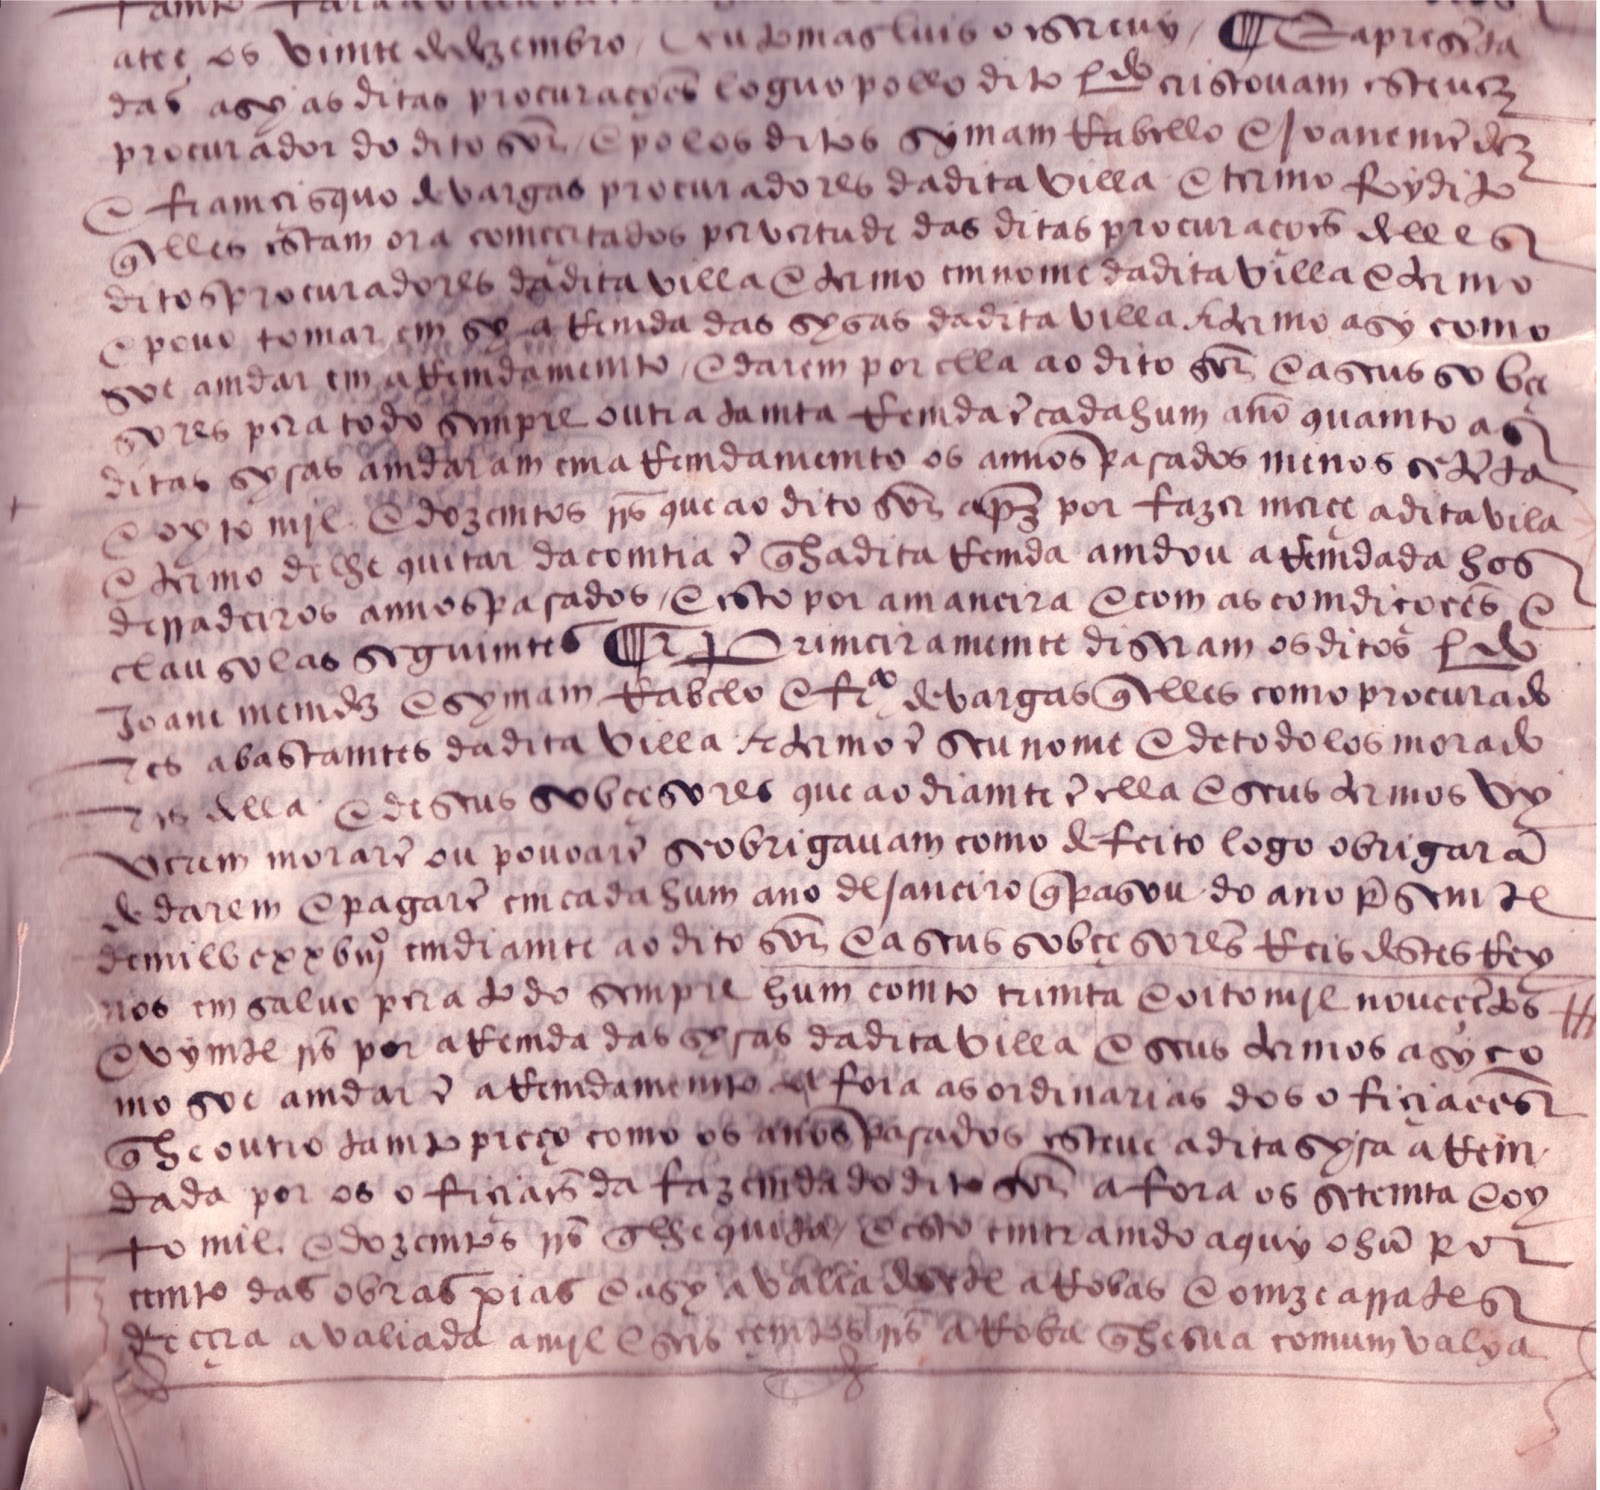 atee os vimte de dezembro / eu tomas luis o escrevy / ¶ E apresẽta
das asy as ditas procuraçoẽs loguo pollo dito Ldo cristovam esteuez
procurador do dito sõr / e polos ditos symam Rabello e Joane mẽdez
e framcisquo de vargas procuradores da dita villa e termo foy dito
q̃ elles estam ora comçertados per vertude das ditas procuraçoẽs delles
ditos procuradores da dita villa e termo em nome da dita villa e termo
e povo tomar em sy a Remda das sysas da dita villa e termo asy como
soe amdar em aRemdamemto / e darem por ella ao dito sõr e a seus sobçe
sores pera todo sempre outra tamta Remda ẽ cada hum año quamto as
ditas sysas amdaram em aRemdamemto os annos pasados menos setẽta
e oyto mjl e dozemtos rs̃ que ao dito sõr apraz por fazer merçe a dita vila
e termo de lhe quitar da comtia ẽ q̃ ha dita Remda amdou aRemdada hos
derradeiros annos pasados / e esto por a maneira e com as comdiçoẽs e
clausolas seguimtes ¶ Primeiramemte diseram os ditos Ldo
Joane memdez e symam Rabelo e frco de vargas q̃ elles como procurado
res abastamtes da dita villa e termo ẽ seu nome e de todolos morado
res della e de seus sobçesores que ao diamte ẽ ella e seus termos vy
verem morarẽ ou povoarẽ se obrigavam como de feito logo obrigarã
de darem e pagarẽ em cada hum ano de Janeiro q̃ pasou do ano presemte
de mil bcxxbiijo em diamte ao dito sõr e a seus sobçesores Reis destes Rey
nos em salvo pera todo sempre hum comto trimta e oito mjl noveçẽtos
e vymte rs̃ por a Remda das sysas da dita villa e seus termos asy co
mo soe amdar ẽ aRemdamemto e a fora as ordinarias dos ofiçiaees
q̃ he outro tamto preço como os anos pasados esteve a dita sysa aRem
dada por os ofiçiaes da fazemda do dito sõr a fora os setemta e oy
to mil e dozemtos rs̃ q̃ lhe quita / e esto emtramdo aquy o hũ por
cemto das obras pias e asy a valia de sete aRobas e omze arrates
de çera avaliada a mjl e seis çemtos rs̃ aRoba q̃ he sua comum valya